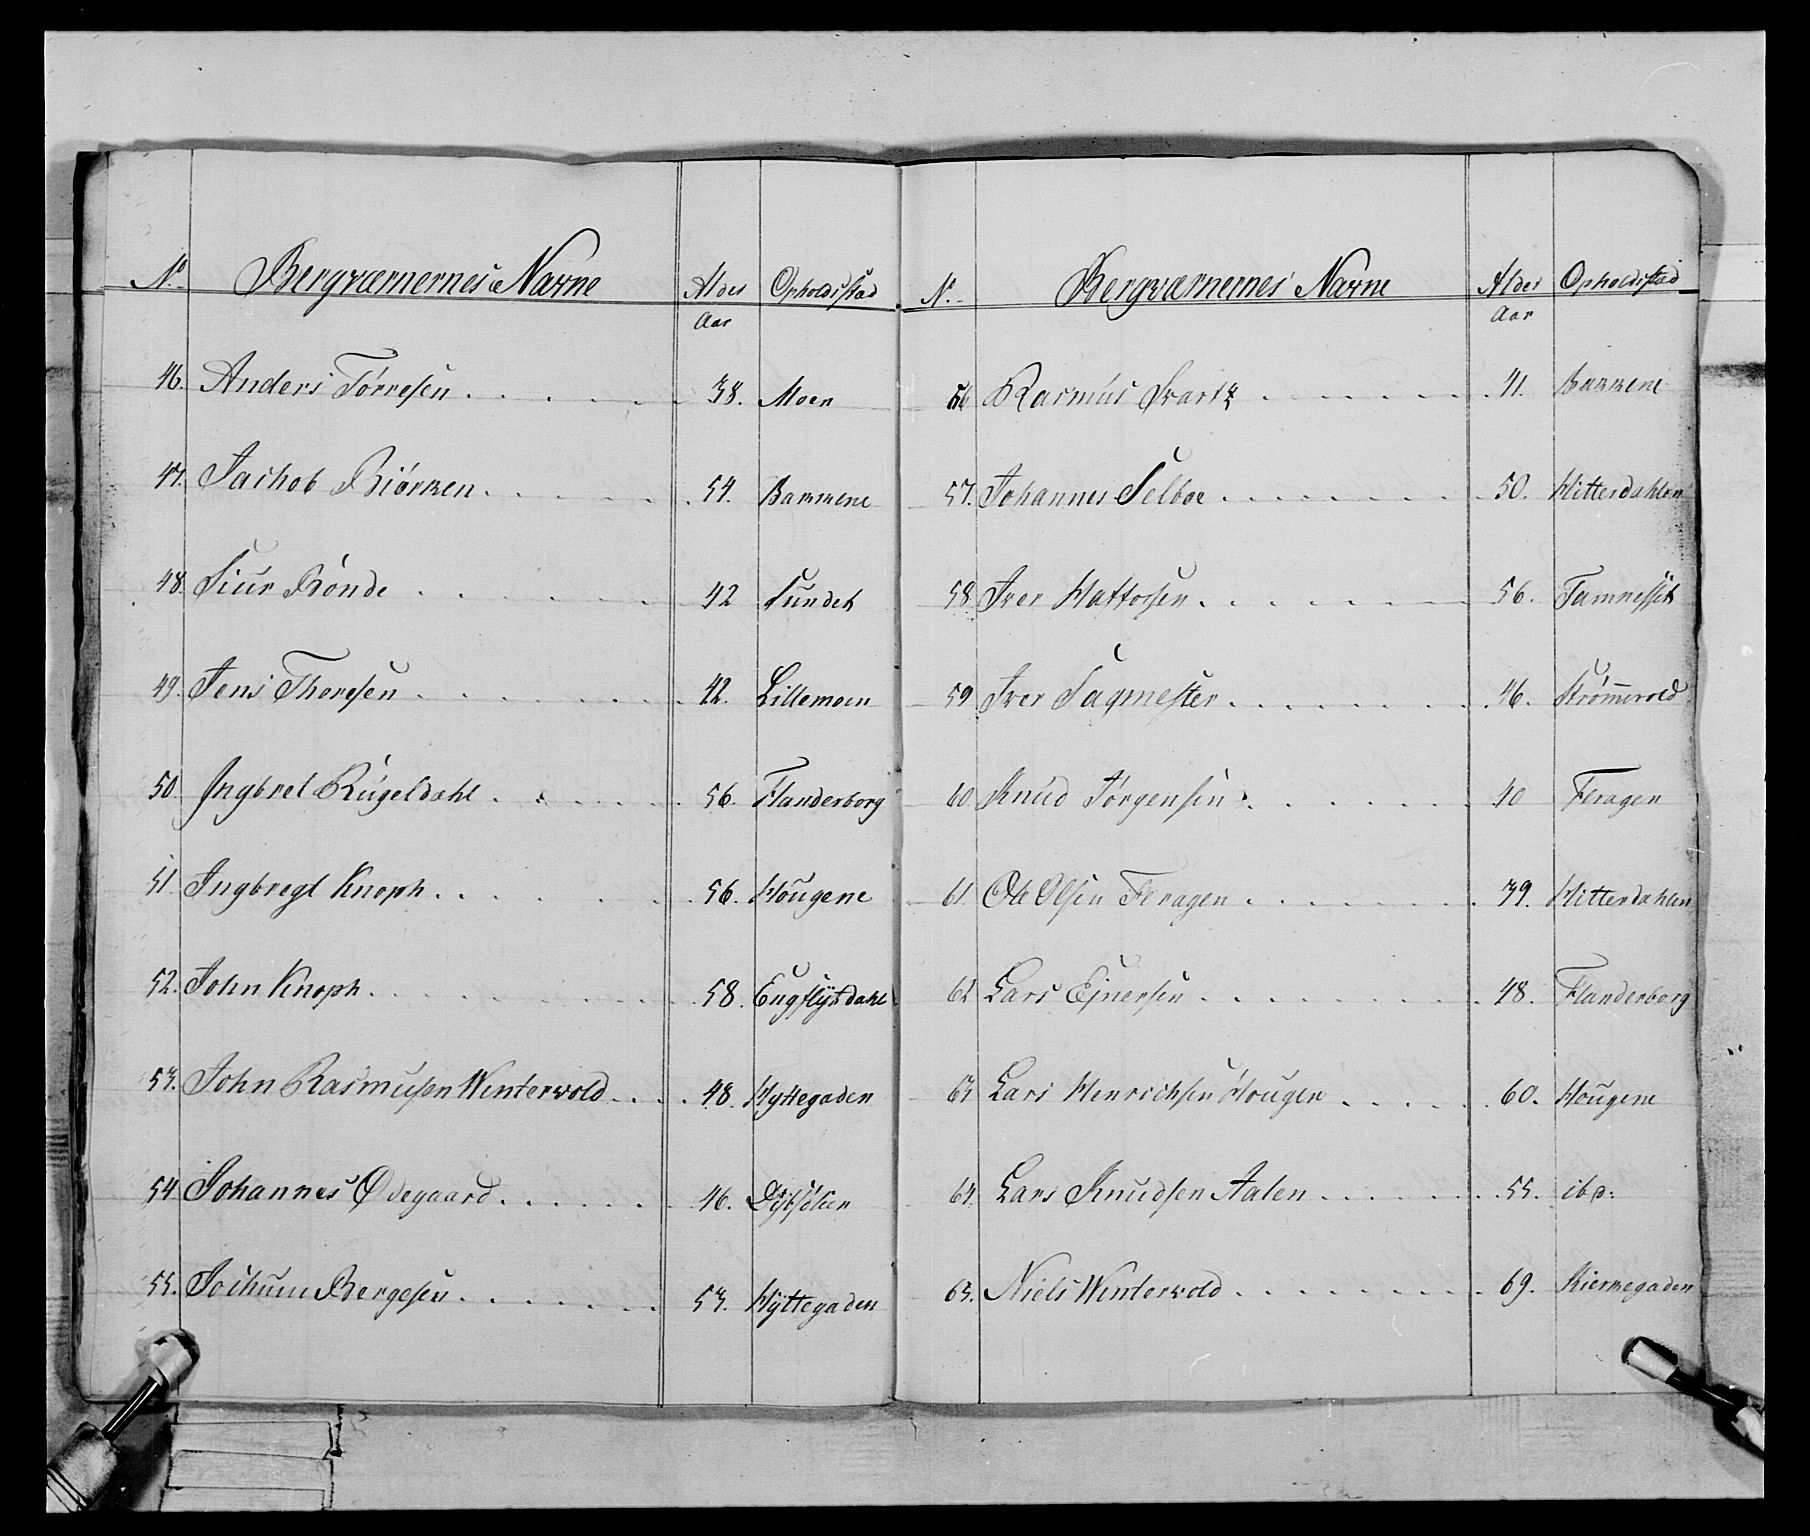 No. Bergværnernes Navne Alder Opholdsstæd
Aar
46. Anders Tørresen 38. Moen
47. Jachob Biørken 54. Bakkene
48. Siur Bönde 42 Sundet
49. Jens Thoresen 42. Lillemoen
50. Ingbret Rugeldahl 56. Flanderborg
51. Ingbregt Knoph 56. Hougene
52. John Knoph 58. Engslÿtdahl
53. John Rasmusen Winterwold 48. Hyttegaden
54 Johannes Ødegaard 46.
55. Jochum Bergesen 53. Hÿttegaden
N. Bergværnernes Navne Alder Opholdsstæd
Aar
56 Rasmus Svartz 41. Bakkene
57. Johannes Selboe 50. Hitterdahlen
58. Iver Hattosen 56. Tamnesset
59 Iver Sagmester 46. Strømmevold
60 Knud Jörgensen 40 Feragen
61. Ole Olsen Feragen 39. Hitterdahlen
62 Lars Ejnersen 48. Flanderborg
63 Lars Henrichsen Hougen 60. Hougene
64. Lars Knudsen Aalen 55. ibd:
65. Niels Winterwold 69. Kierkegaden